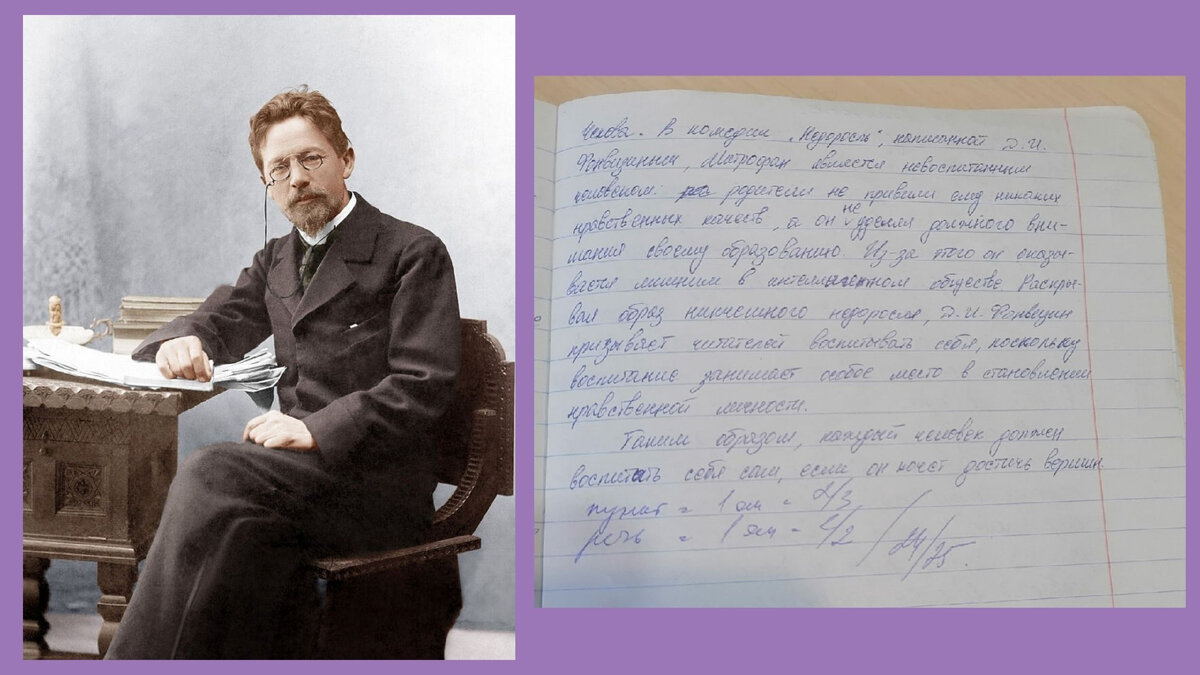 Чехова. В комедии „Недоросль", написанной Д.И.
Фонвизиным, Митрофан является невоспитанным
человеком: родители не привили ему никаких
нравственных качеств, а он не уделял должного вни-
мания своему образованию. Из-за этого он оказы-
вается лишним в интеллигентном обществе. Раскры-
вая образ никчемного недоросля, Д.И. Фонвизин
призывает читателей воспитывать себя, поскольку
воспитание занимает особое место в становлении
нравственной личности.
Таким образом, каждый человек должен
воспитать себя сам, если он хочет достичь вершин.
пункт = 1 ош = 2/3
речь = 1 ош = 2/2 / 24/25.